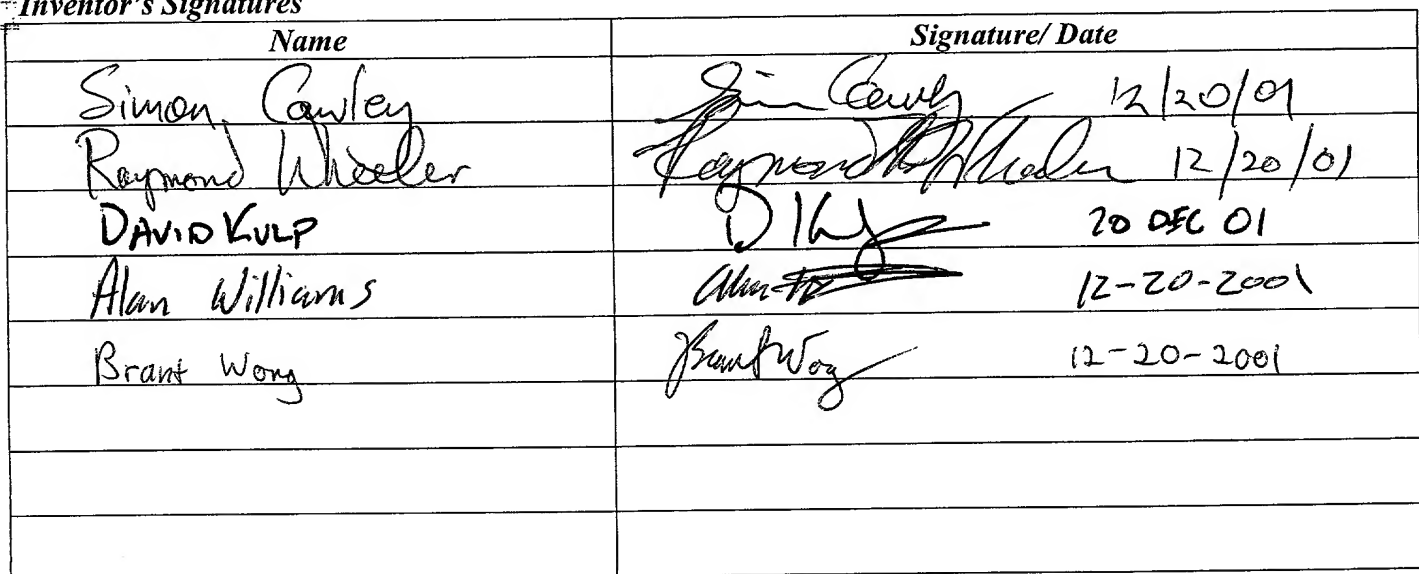 Inventor's Signatures
Name Signature/ Date
Simon Cawley Simon Cawley 12/20/01
Raymond Wheeler Raymond Wheeler 12/20/01
DAVID KULP D Kulp 20 DEC 01
Alan Williams Alan 12-20-2001
Brant Wong Brant Wong 12-20-2001